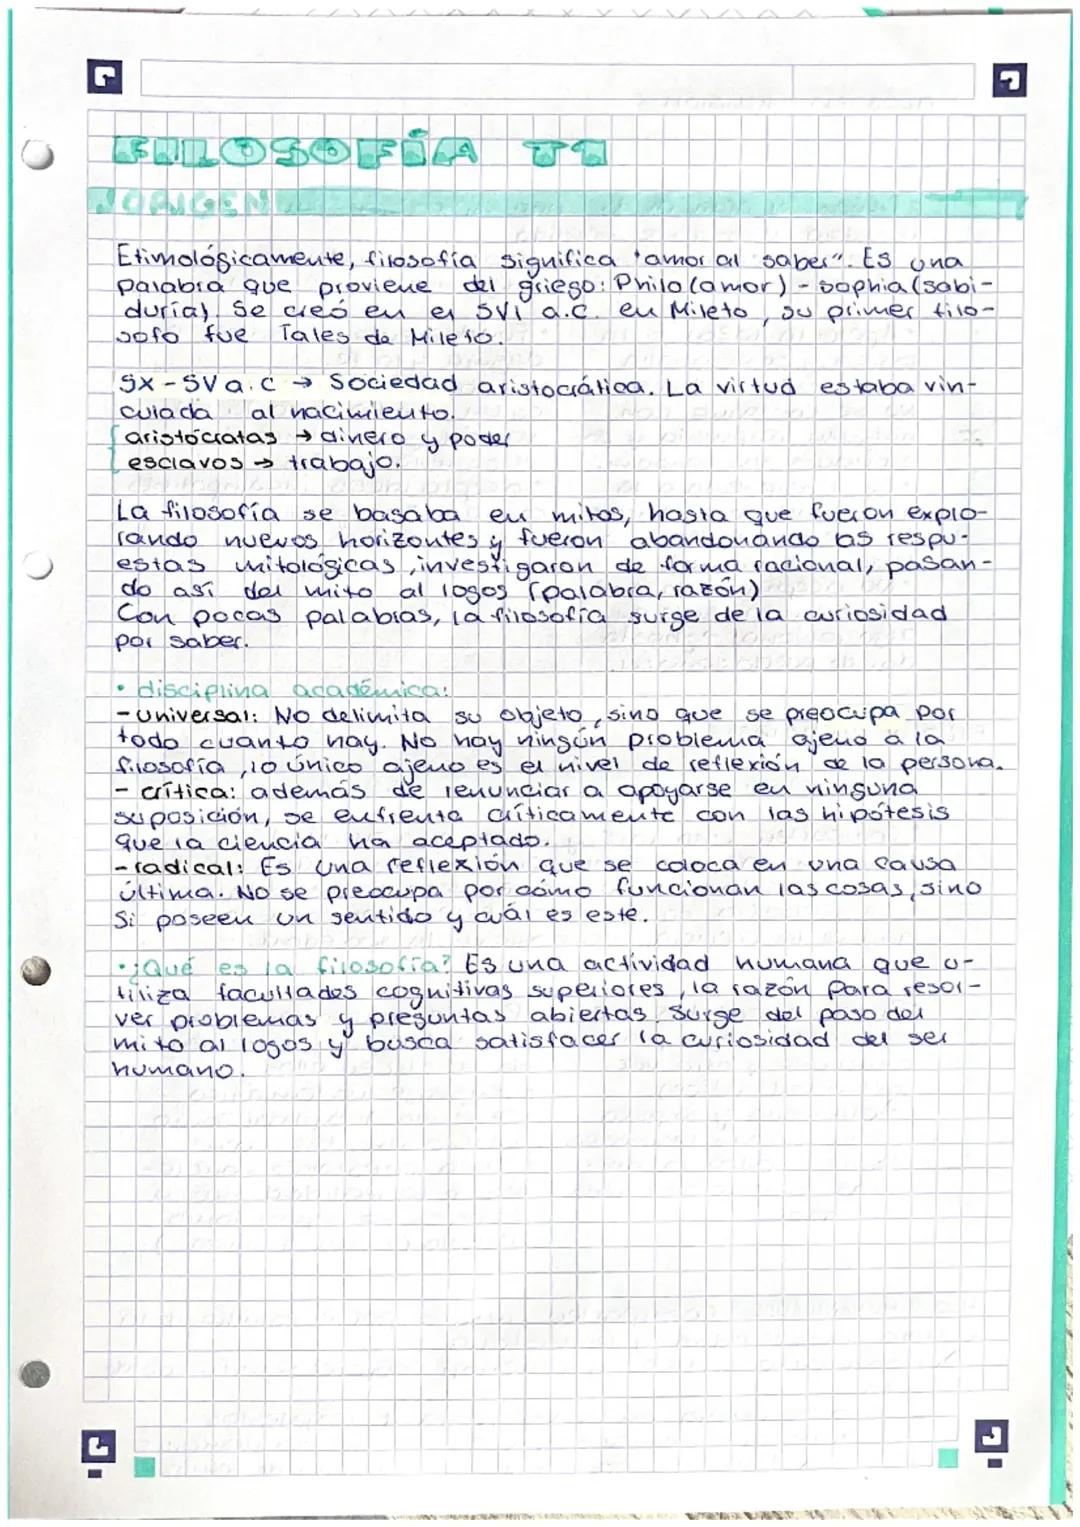 FILOSOFÍA T1
ORIGEN
Etimológicamente, filosofía significa "amor al saber". Es una
palabra que proviene del griego: Philo (amor) - sophia (sabi-
duría). Se creó en el SVI a.c. en Mileto, su primer filo-
sofo fue Tales de Mileto.
SX - SV a.c → Sociedad aristocrática. La virtud estaba vin-
culada al nacimiento.
aristócratas → dinero y poder
esclavos → trabajo.
La filosofía se basaba en mitos, hasta que fueron explo-
rando nuevos horizontes y fueron abandonando las respu-
estas mitológicas, investigaron de forma racional, pasan-
do así del mito al logos (palabra, razón)
Con pocas palabras, la filosofía surge de la curiosidad
por saber.
• disciplina académica:
- universal: No delimita su objeto, sino que se preocupa por
todo cuanto hay. No hay ningún problema ajeno a la
filosofía, lo único ajeno es el nivel de reflexión de la persona.
- crítica: además de renunciar a apoyarse en ninguna
suposición, se enfrenta críticamente con las hipótesis
que la ciencia ha aceptado.
- radical: Es una reflexión que se coloca en una causa
última. No se preocupa por cómo funcionan las cosas, sino
si poseen un sentido y cuál es este.
• ¿Qué es la filosofía? Es una actividad humana que u-
tiliza facultades cognitivas superiores, la razón para resol-
ver problemas y preguntas abiertas. Surge del paso del
mito al logos y busca satisfacer la curiosidad del ser
humano.